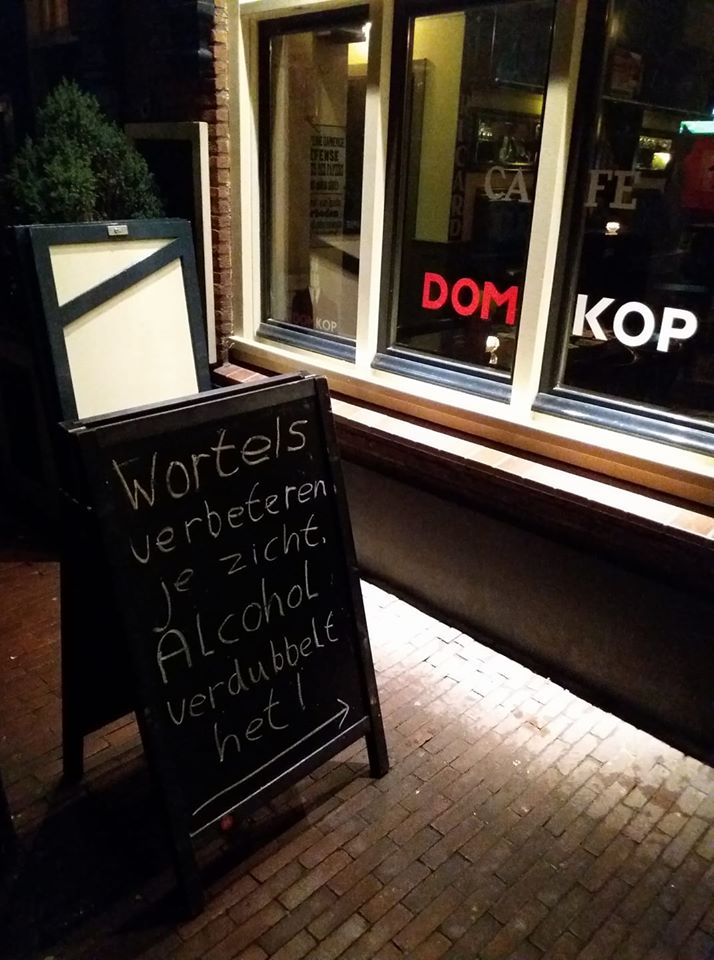 CAFE
DOM KOP
DOM KOP
Wortels
verbeteren
je zicht.
Alcohol
verdubbelt
het!